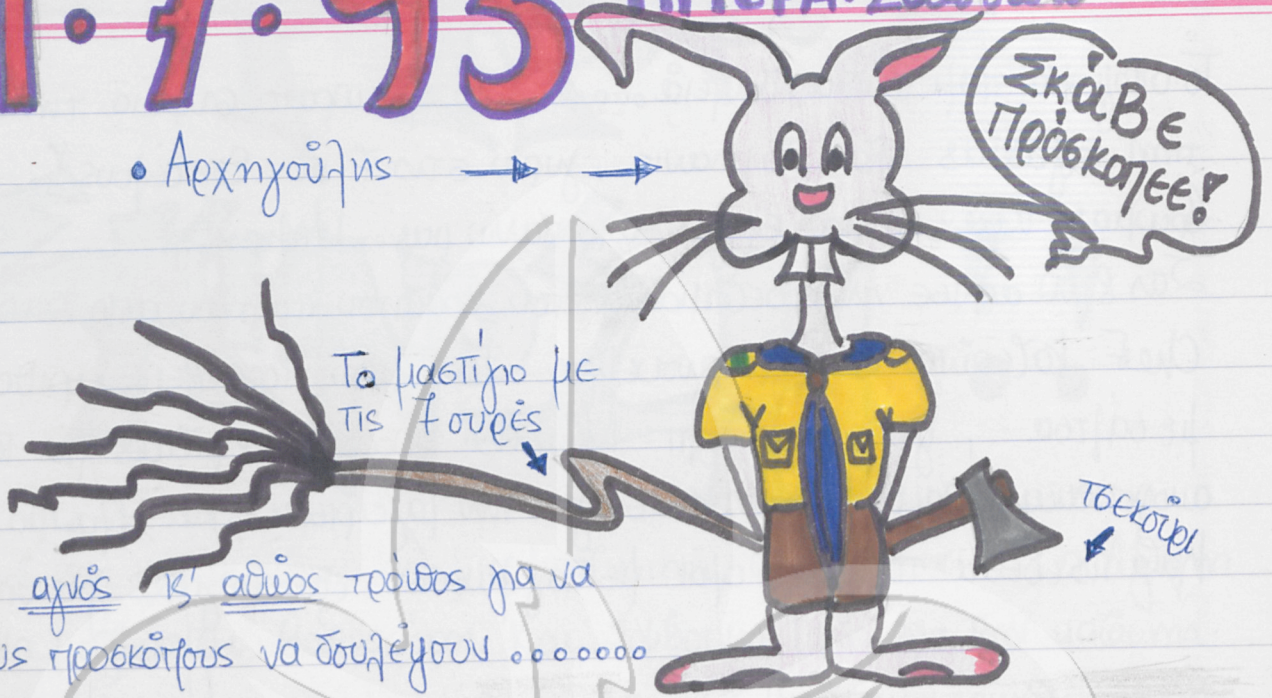 1.7.93
• Αρχηγούλης
Σκάβε
Πρόσκοπεε!
Το μαστίγιο με
τις 7 ουρές
τσεκούρι
αγνός κ' αθώος τρόπος για να
προσκόπους να δουλέψουν .......